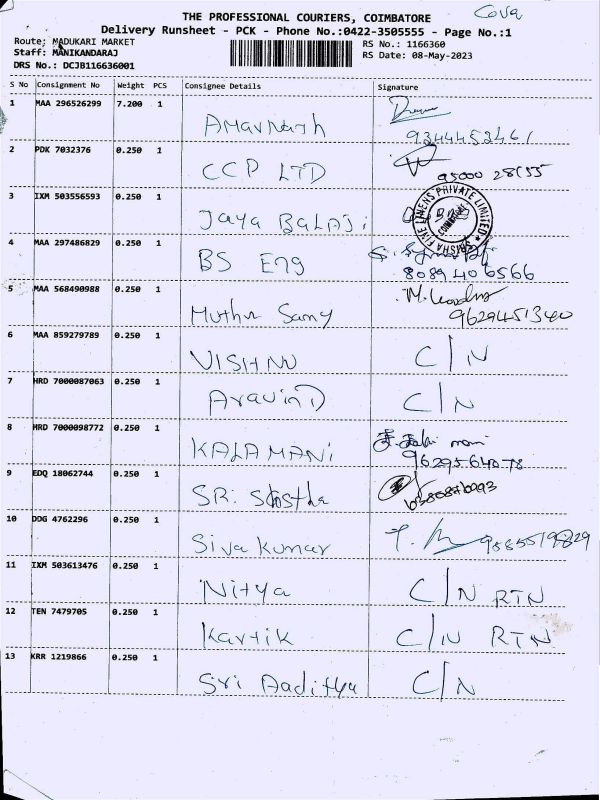 Cova
THE PROFESSIONAL COURIERS, COIMBATORE
Delivery Runsheet - PCK - Phone No.:0422-3505555 - Page No.:1
Route: MADUKARI MARKET
RS No.: 1166360
Staff: MANIKANDARAJ
RS Date: 08-May-2023
DRS No.: DCJB116636001
S No Consignment No Weight PCS Consignee Details Signature
1 MAA 296526299 7.200 1
Amavnath 9344452461
2 PDK 7032376 0.250 1
CCP LTD 95000 28155
3 IXM 503556593 0.250 1
Jaya BALAJi
LINENS PRIVATE LIMITED COIMBATORE
4 MAA 297486829 0.250 1
BS Eng 8089406566
5 MAA 568490988 0.250 1
Muthu Samy 9629451340
6 MAA 859279789 0.250 1
VISHNU C/N
7 HRD 7000087063 0.250 1
AravinD C/N
8 HRD 7000098772 0.250 1
KALAMANi 9629564078
9 EDQ 18062744 0.250 1
SR. Shostha
10 DDG 4762296 0.250 1
Siva Kumar
11 IXM 503613476 0.250 1
Nitya C/N RTN
12 TEN 7479705 0.250 1
Kartik C/N RTN
13 KRR 1219866 0.250 1
Sri Aaditya C/N